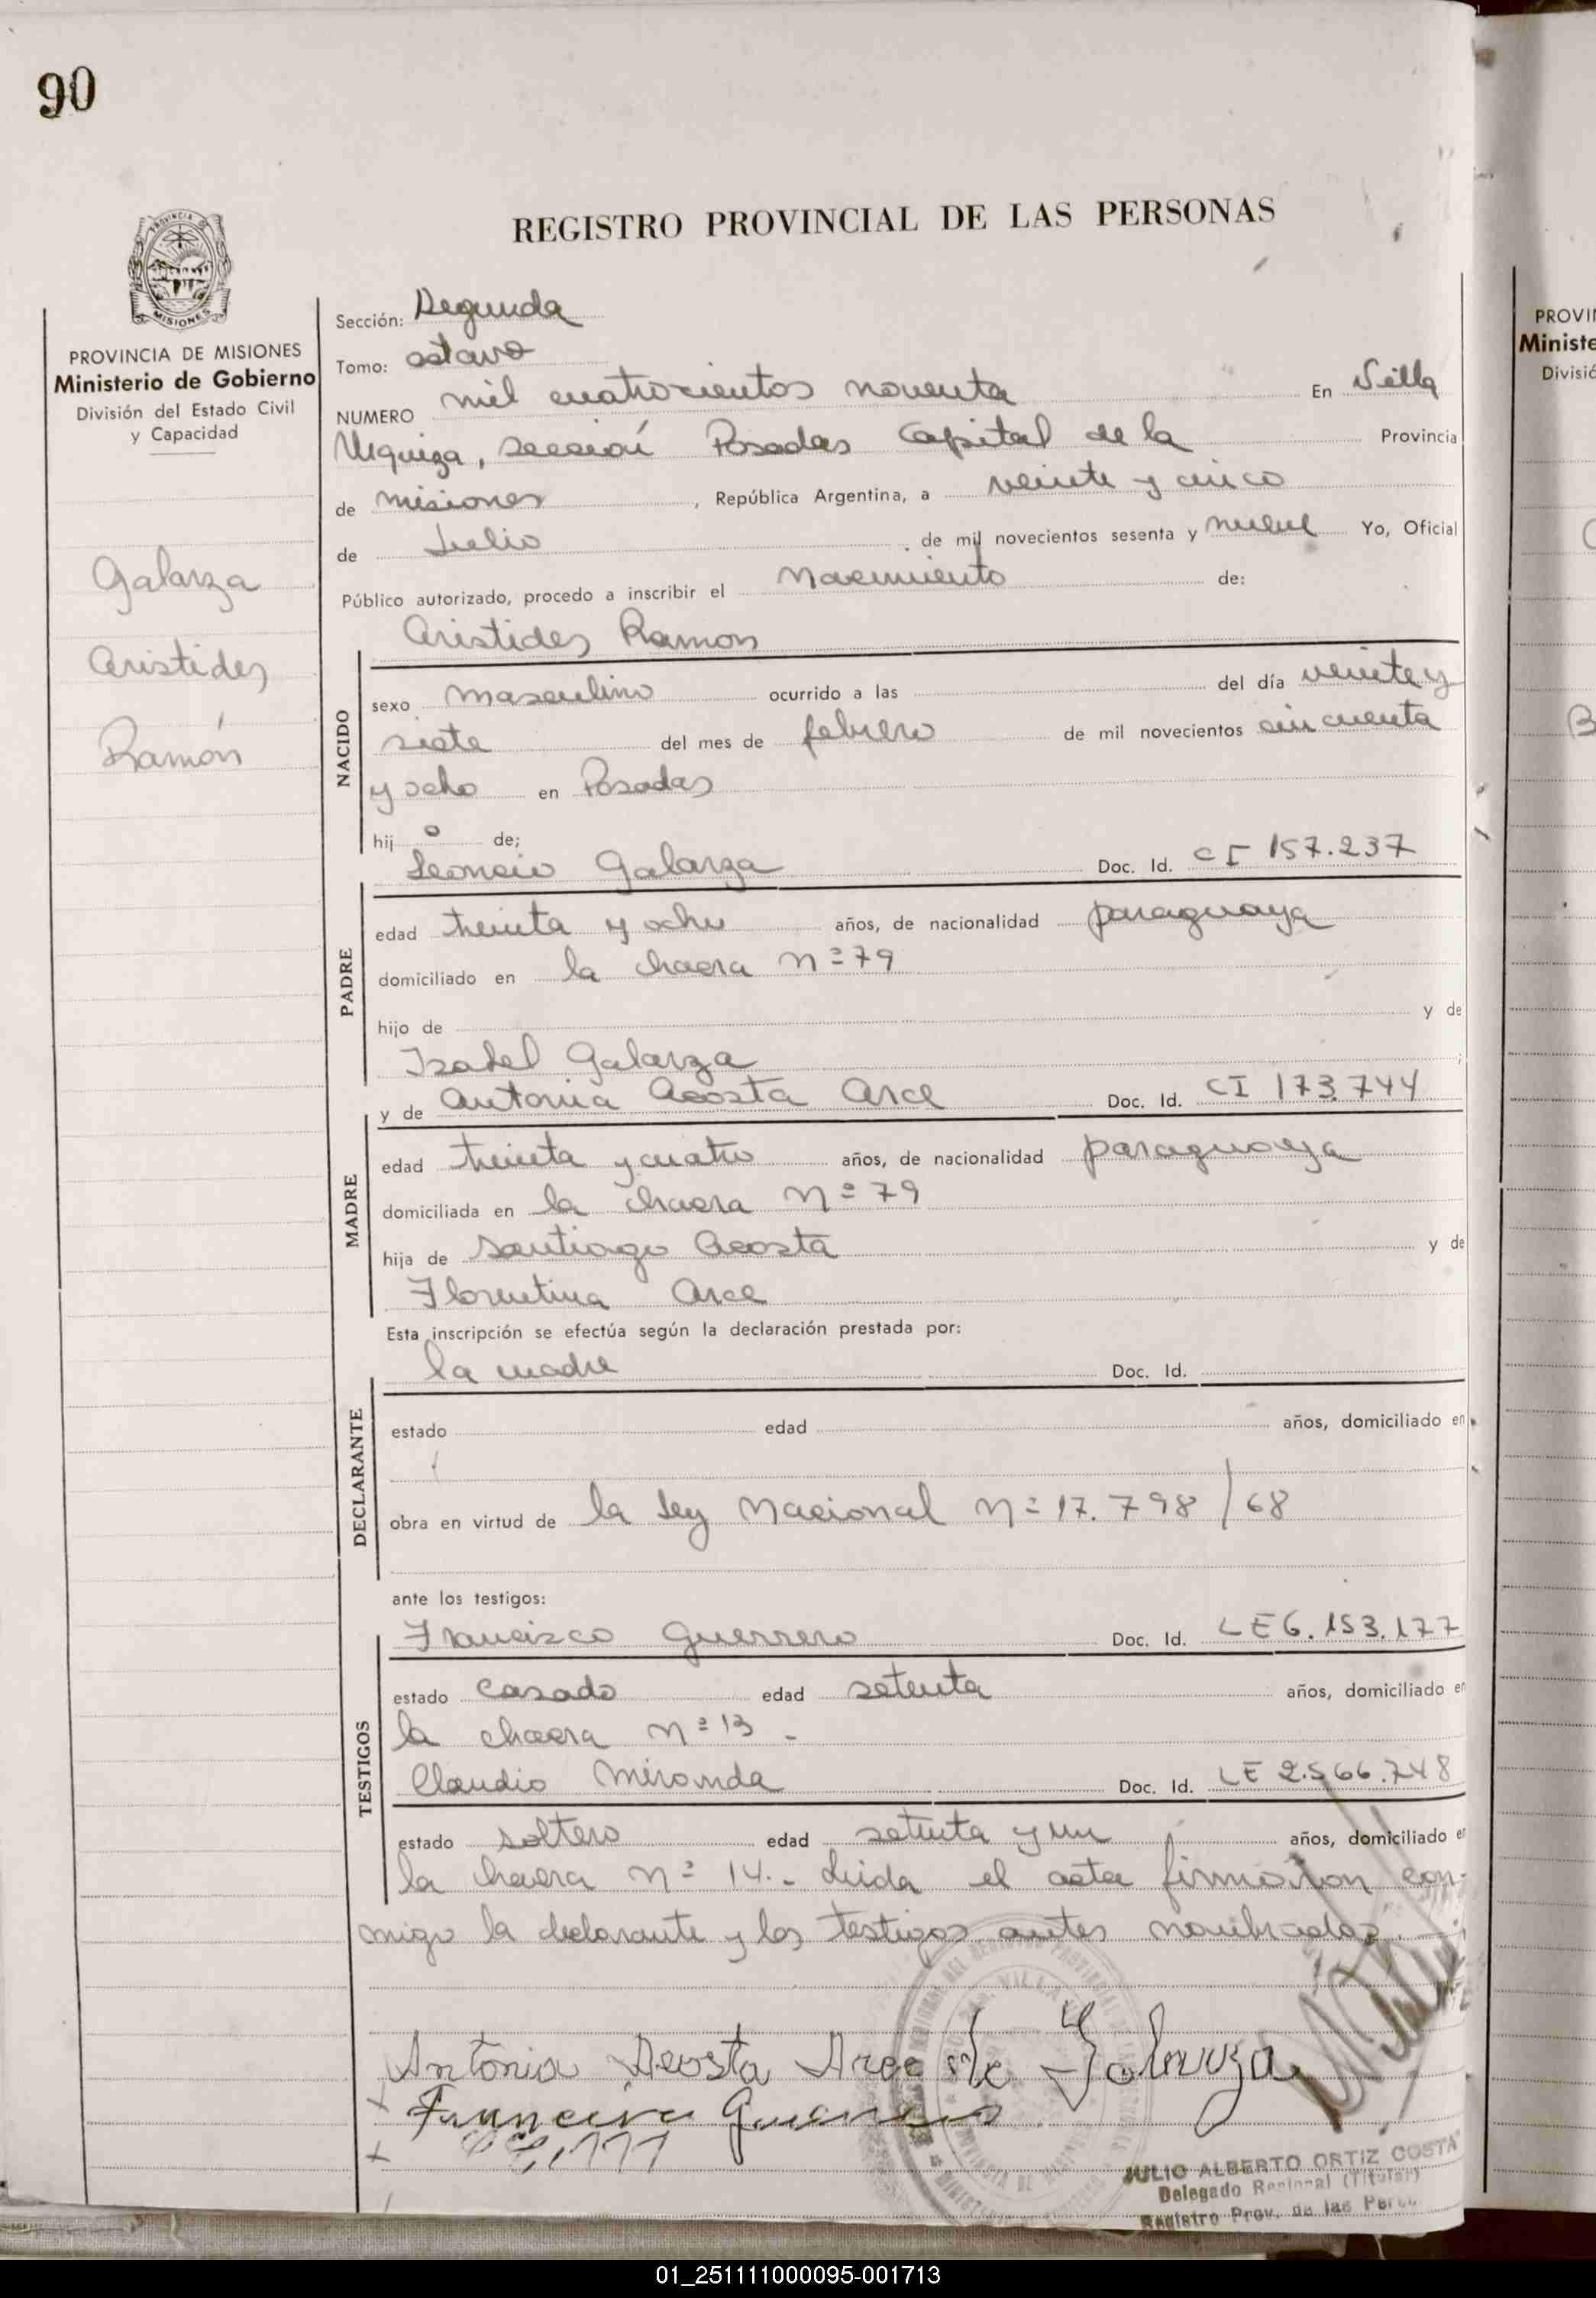 90
REGISTRO PROVINCIAL DE LAS PERSONAS
PROVINCIA
MISIONES
PROVINCIA DE MISIONES
Ministerio de Gobierno
División del Estado Civil
y Capacidad
Galarza
Aristides
Ramón
Sección: Segunda
Tomo: octavo
NUMERO mil cuatrocientos noventa En Villa
Urquiza, sección Posadas Capital de la Provincia
de misiones, República Argentina, a veinte y cinco
de Julio de mil novecientos sesenta y nueve Yo, Oficial
Público autorizado, procedo a inscribir el Nacimiento de:
Aristides Ramon
NACIDO
sexo masculino ocurrido a las del día veinte y
siete del mes de febrero de mil novecientos cincuenta
y ocho en Posadas
hij o de;
Leoncio Galarza Doc. Id. CI 157.237
PADRE
edad treinta y ocho años, de nacionalidad paraguaya
domiciliado en la chacra nº 79
hijo de y de
Isabel Galarza ;
y de Antonia Acosta Arce Doc. Id. CI 173.744
MADRE
edad treinta y cuatro años, de nacionalidad paraguaya
domiciliada en la chacra nº 79
hija de Santiago Acosta y de
Florentina Arce
Esta inscripción se efectúa según la declaración prestada por:
la madre Doc. Id.
DECLARANTE
estado edad años, domiciliado en
obra en virtud de la Ley Nacional nº 17.798/68
ante los testigos:
Francisco Guerrero Doc. Id. LE 6.153.177
TESTIGOS
estado casado edad setenta años, domiciliado en
la chacra nº 13 -
Claudio Miranda Doc. Id. LE 2.566.748
estado soltero edad setenta y un años, domiciliado en
la chacra nº 14.- Leida el acta firmaron con-
migo la declarante y los testigos antes nombrados.-
Antonia Acosta Arce de Galarza
Guerrero
JULIO ALBERTO ORTIZ COSTA
Delegado Regional (Titular)
Registro Prov. de las Pers.
PROVIN
Ministe
Divisió
01_251111000095-001713